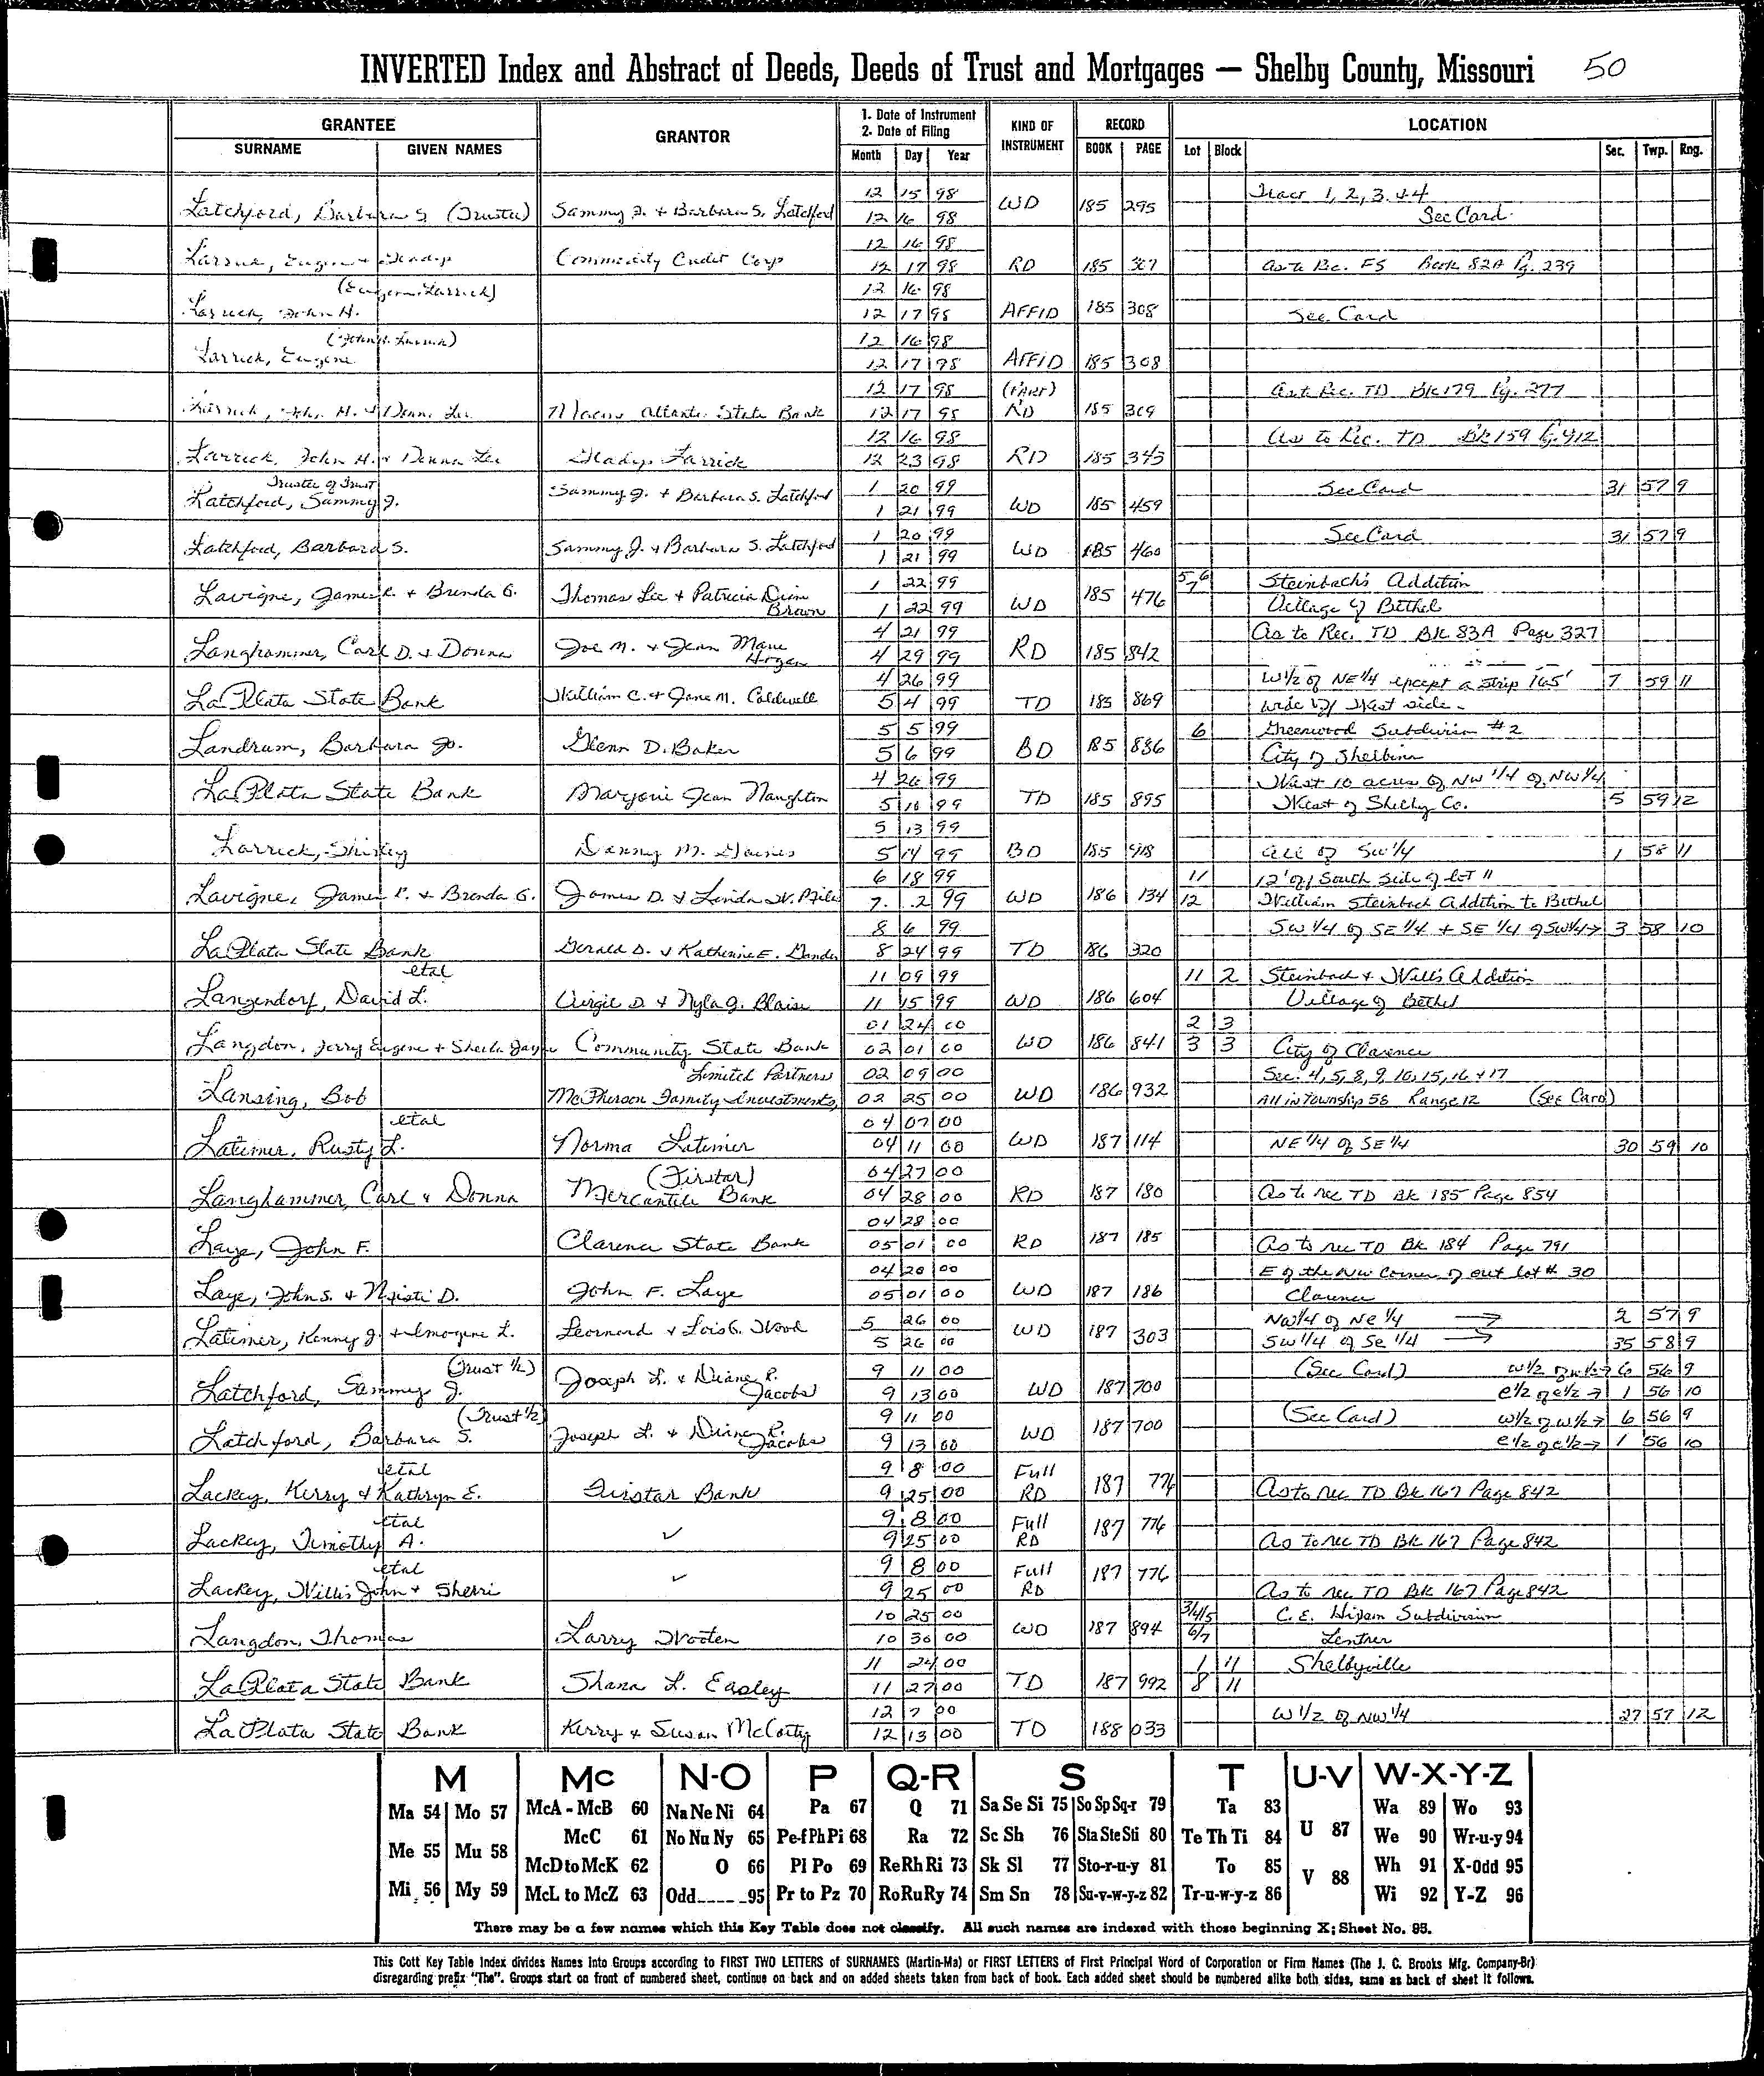 INVERTED Index and Abstract of Deeds, Deeds of Trust and Mortgages — Shelby County, Missouri 50
GRANTEE GRANTOR 1. Date of Instrument 2. Date of Filing KIND OF INSTRUMENT RECORD LOCATION
SURNAME GIVEN NAMES Month Day Year BOOK PAGE Lot Block Sec. Twp. Rng.
12 15 98 Tract 1, 2, 3, & 4
Latchford, Barbara S. (Trustee) Sammy J. & Barbara S. Latchford 12 16 98 WD 185 295 See Card
12 16 98
Larrick, Eugene & Gladys Commodity Credit Corp 12 17 98 RD 185 307 As to Rec. FS Book 82A Pg. 239
(Eugene Larrick) 12 16 98
Larrick, John H. 12 17 98 AFFID 185 308 See Card
(John H. Larrick) 12 16 98
Larrick, Eugene 12 17 98 AFFID 185 308
12 17 98 (PART) As to Rec. TD Bk 179 Pg. 277
Larrick, John H. & Donna Lee Macon Atlanta State Bank 12 17 98 RD 185 309
12 16 98 As to Rec. TD Bk 159 Pg. 412
Larrick, John H. & Donna Lee Gladys Larrick 12 23 98 RD 185 343
Trustee of Trust 1 20 99 See Card 31 57 9
Latchford, Sammy J. Sammy J. & Barbara S. Latchford 1 21 99 WD 185 459
1 20 99 See Card 31 57 9
Latchford, Barbara S. Sammy J. & Barbara S. Latchford 1 21 99 WD 185 460
1 22 99 5 6 7 Steinbach's Addition
Lavigne, James R. & Brenda G. Thomas Lee & Patricia Brown 1 22 99 WD 185 476 Village of Bethel
4 21 99 As to Rec. TD Bk 83A Page 327
Langhammer, Carl D. & Donna Joe M. & Jean Marie Hogan 4 29 99 RD 185 842
4 26 99 W1/2 of NE1/4 except a strip 165' 7 59 11
La Plata State Bank William C. & Jane M. Caldwell 5 4 99 TD 185 869 wide off West side.
5 5 99 6 Greenwood Subdivision #2
Landrum, Barbara Jo. Glenn D. Baker 5 6 99 BD 185 886 City of Shelbina
4 26 99 West 10 acres of NW 1/4 of NW1/4
La Plata State Bank Marjorie Jean Naughton 5 10 99 TD 185 895 West of Shelby Co. 5 59 12
5 13 99
Larrick, Shirley Danny M. Gaines 5 14 99 BD 185 918 all of SW1/4 1 58 11
6 18 99 11 12' of South side of lot 11
Lavigne, James R. & Brenda G. James D. & Linda W. 7 2 99 WD 186 134 12 William Steinbach Addition to Bethel
8 6 99 SW 1/4 of SE 1/4 + SE 1/4 of SW1/4→ 3 58 10
La Plata State Bank Gerald D. & Katherine E. 8 24 99 TD 186 320
etal 11 09 99 11 2 Steinbach & Will's Addition
Langendorf, David L. Virgil D. & Nyla J. Blaise 11 15 99 WD 186 604 Village of Bethel
01 24 00 2 3
Langdon, Jerry Eugene & Sheila Jayne Community State Bank 02 01 00 WD 186 841 3 3 City of Clarence
Limited Partners 02 09 00 Sec. 4, 5, 8, 9, 10, 15, 16 + 17
Lansing, Bob McPherson Family Investments, 02 25 00 WD 186 932 All in Township 58 Range 12 (See Card)
etal 04 07 00
Latimer, Rusty L. Norma Latimer 04 11 00 WD 187 114 NE 1/4 of SE 1/4 30 59 10
(Firstar) 04 27 00
Langhammer, Carl & Donna Mercantile Bank 04 28 00 RD 187 180 As to rec TD Bk 185 Page 854
04 28 00
Laye, John F. Clarence State Bank 05 01 00 RD 187 185 As to rec TD Bk 184 Page 791
04 28 00 E of the NW Corner of out lot # 30
Laye, John S. & Kristi D. John F. Laye 05 01 00 WD 187 186 Clarence
5 26 00 NW1/4 of NE 1/4 → 2 57 9
Latimer, Kenny J. & Imogene L. Leornard & Lois G. Wood 5 26 00 WD 187 303 SW 1/4 of SE 1/4 → 35 58 9
(Trust 1/2) 9 11 00 (See Card) W1/2 of W1/2→ 6 56 9
Latchford, Sammy J. Joseph L. & Diane R. Jacobs 9 13 00 WD 187 700 e1/2 of e1/2→ 1 56 10
(Trust 1/2) 9 11 00 (See Card) W1/2 of W1/2→ 6 56 9
Latchford, Barbara S. Joseph L. & Diane R. Jacobs 9 13 00 WD 187 700 e1/2 of e1/2→ 1 56 10
etal 9 8 00 Full
Lackey, Kerry & Kathryn E. Firstar Bank 9 25 00 RD 187 776 As to rec TD Bk 167 Page 842
etal 9 8 00 Full
Lackey, Timothy A. ✓ 9 25 00 RD 187 776 As to rec TD Bk 167 Page 842
etal 9 8 00 Full
Lackey, Willis John & Sherri ✓ 9 25 00 RD 187 776 As to rec TD Bk 167 Page 842
10 25 00 3/4/5 C. E. Subdivision
Langdon, Thomas Larry Wooten 10 30 00 WD 187 894 6/7 Lentner
11 24 00 1 11 Shelbyville
La Plata State Bank Shana L. Easley 11 27 00 TD 187 992 8 11
12 7 00 W 1/2 of NW 1/4 27 57 12
La Plata State Bank Kerry & Susan McCarty 12 13 00 TD 188 033
M Mc N-O P Q-R S T U-V W-X-Y-Z
Ma 54 Mo 57 McA - McB 60 Na Ne Ni 64 Pa 67 Q 71 Sa Se Si 75 So Sp Sq-r 79 Ta 83 U 87 Wa 89 Wo 93
Me 55 Mu 58 McC 61 No Nu Ny 65 Pe-f Ph Pi 68 Ra 72 Sc Sh 76 Sta Ste Sti 80 Te Th Ti 84 We 90 Wr-u-y 94
McD to McK 62 O 66 Pl Po 69 Re Rh Ri 73 Sk Sl 77 Sto-r-u-y 81 To 85 V 88 Wh 91 X-Odd 95
Mi 56 My 59 McL to McZ 63 Odd 95 Pr to Pz 70 Ro Ru Ry 74 Sm Sn 78 Su-v-w-y-z 82 Tr-u-w-y-z 86 Wi 92 Y-Z 96
There may be a few names which this Key Table does not classify. All such names are indexed with those beginning X; Sheet No. 95.
This Cott Key Table Index divides Names Into Groups according to FIRST TWO LETTERS of SURNAMES (Martin-Ma) or FIRST LETTERS of First Principal Word of Corporation or Firm Names (The J. C. Brooks Mfg. Company-Br)
disregarding prefix "The". Groups start on front of numbered sheet, continue on back and on added sheets taken from back of book. Each added sheet should be numbered alike both sides, same as back of sheet it follows.